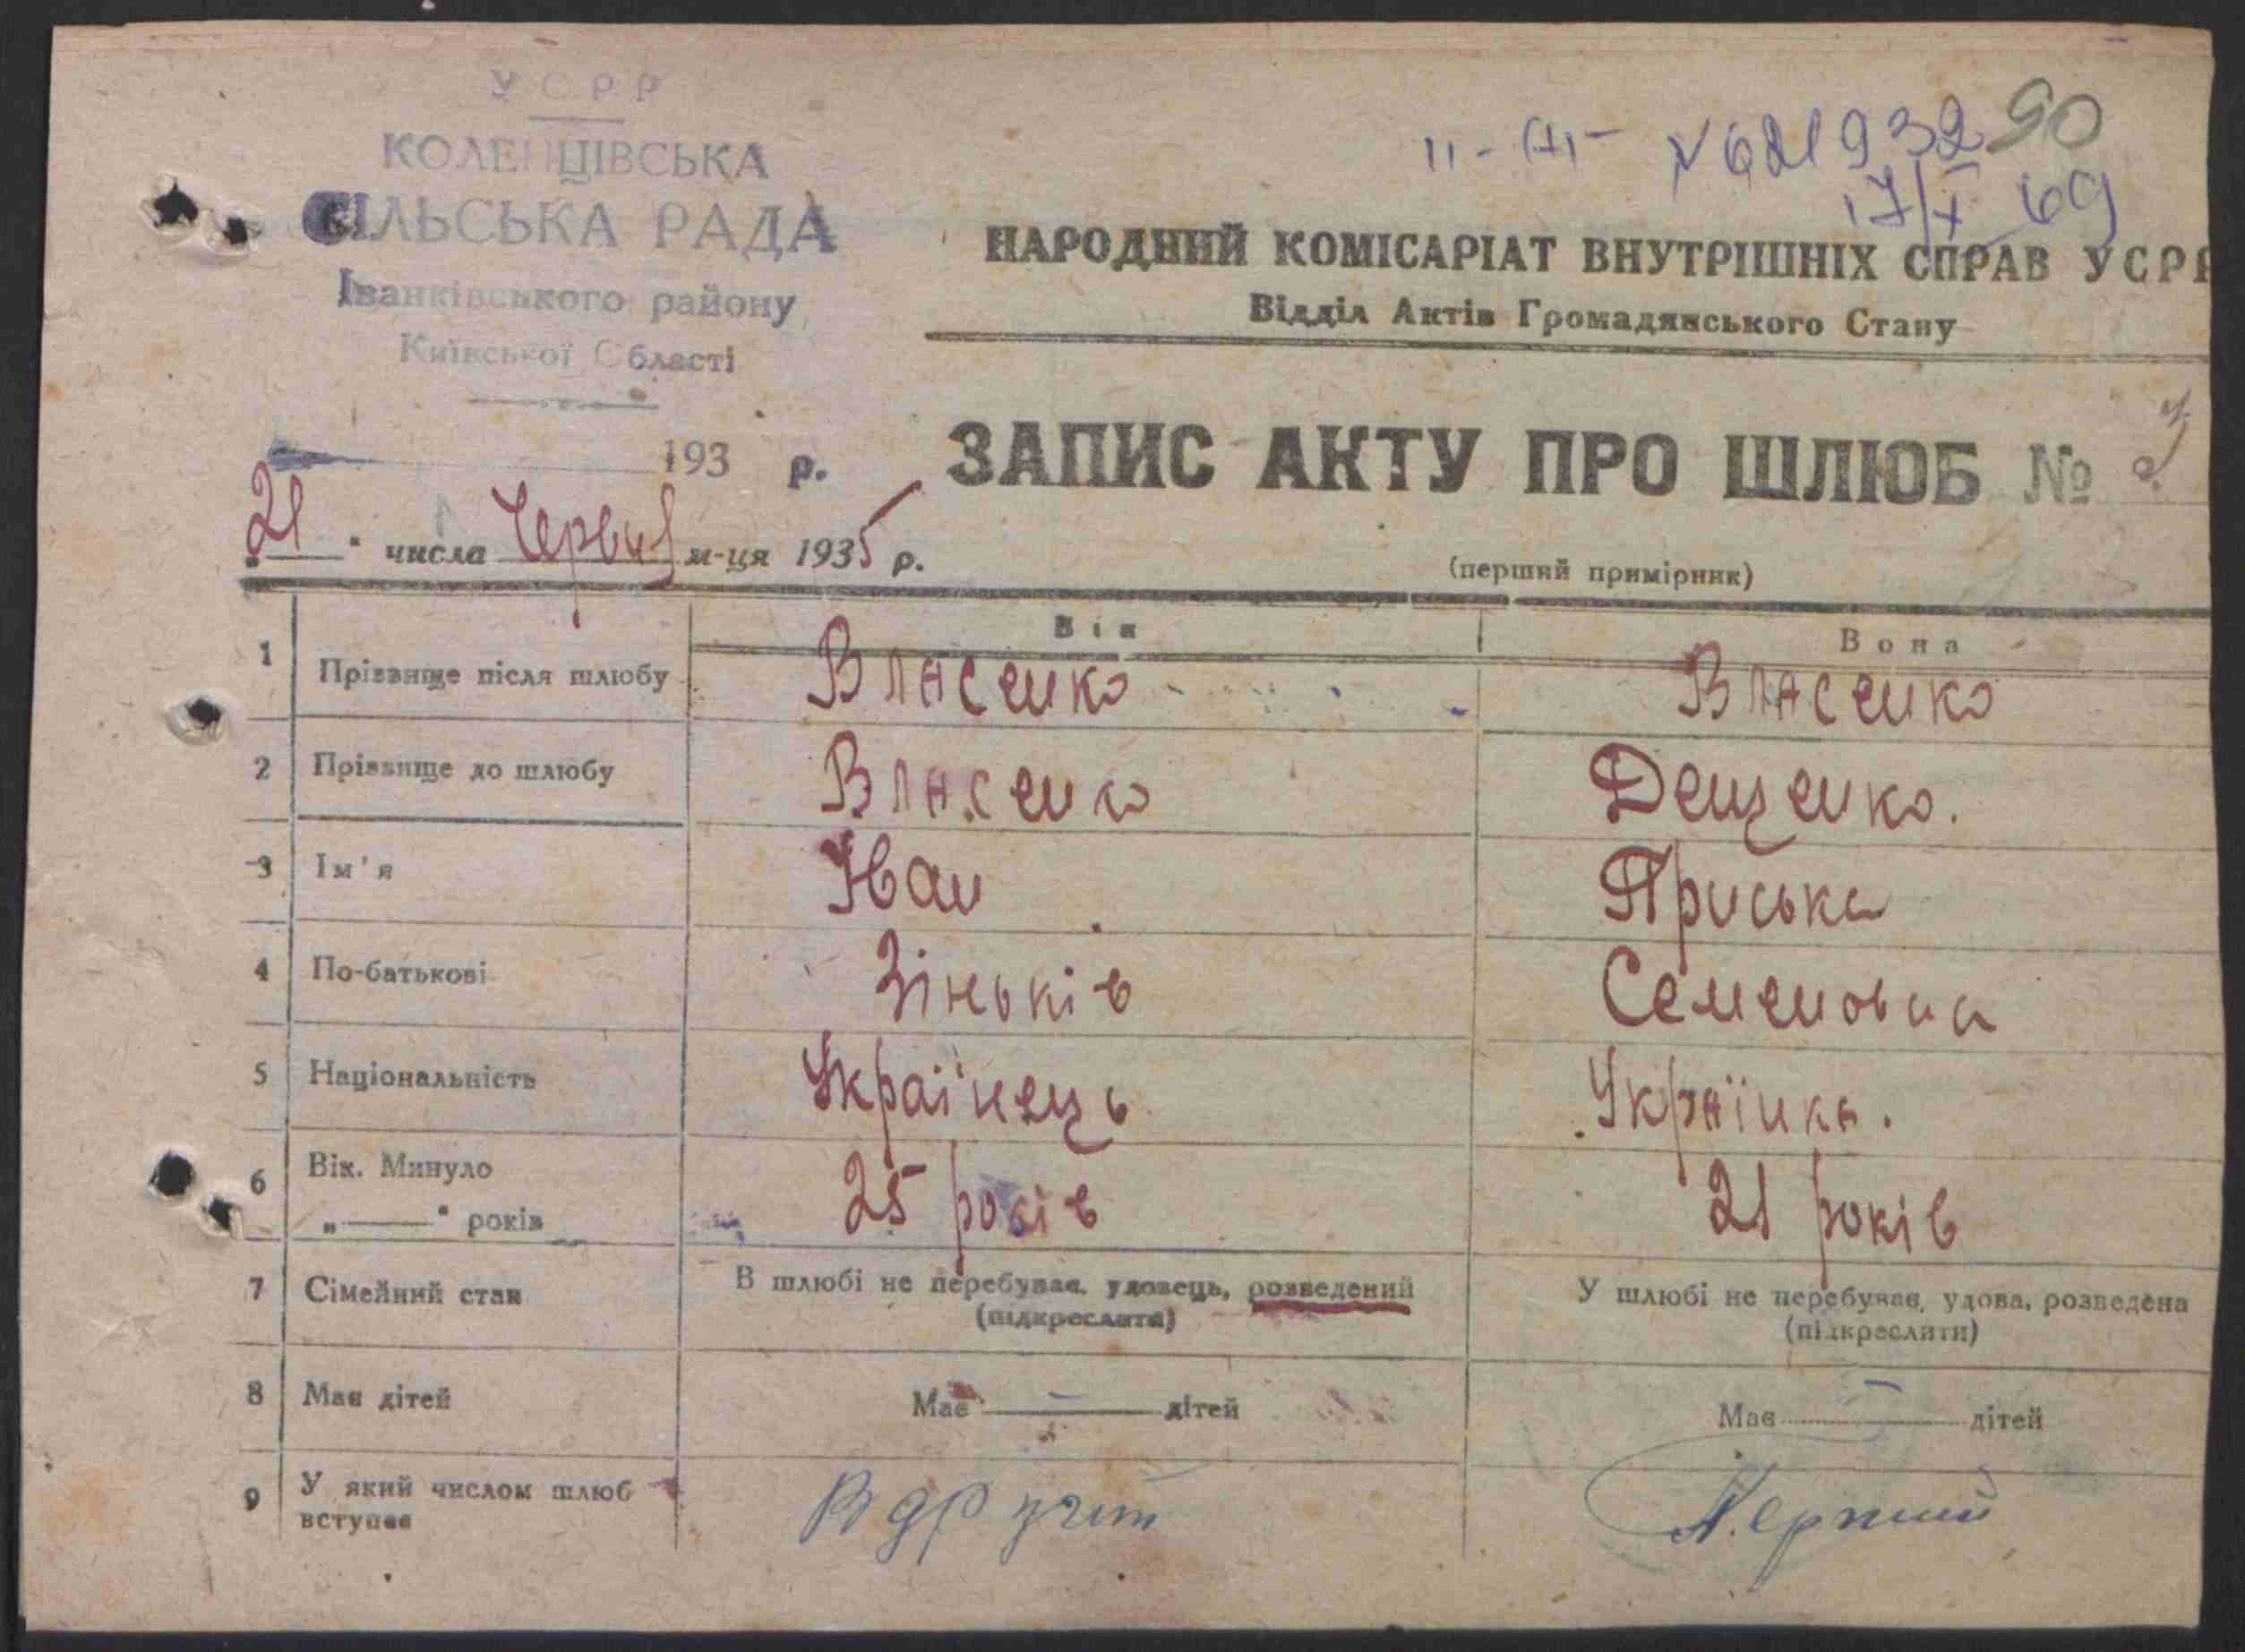 УСРР
КОЛЕНЦІВСЬКА
СІЛЬСЬКА РАДА
Іванківського району
Київської Області
193 р.
"21" числа Червня м-ця 1935 р.
II-АП- №621932 90
17/X 69
НАРОДНИЙ КОМІСАРІАТ ВНУТРІШНІХ СПРАВ УСРР
Відділ Актів Громадянського Стану
ЗАПИС АКТУ ПРО ШЛЮБ №
(перший примірник)
Він Вона
1 Прізвище після шлюбу Власенко Власенко
2 Прізвище до шлюбу Власенко Дещенко.
3 Ім'я ІванПриська
4 По-батькові Зіньків Семеновна
5 Національність Українець Українка.
6 Вік. Минуло "—" років 25 років 21 років
7 Сімейний стан В шлюбі не перебував, удовець, розведений (підкреслити) У шлюбі не перебував, удова, розведена (підкреслити)
8 Має дітей Має — дітей Має — дітей
9 У який числом шлюб вступав В другий Перший